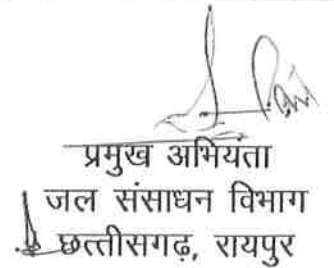 प्रमुख अभियंता
जल संसाधन विभाग
छत्तीसगढ़, रायपुर